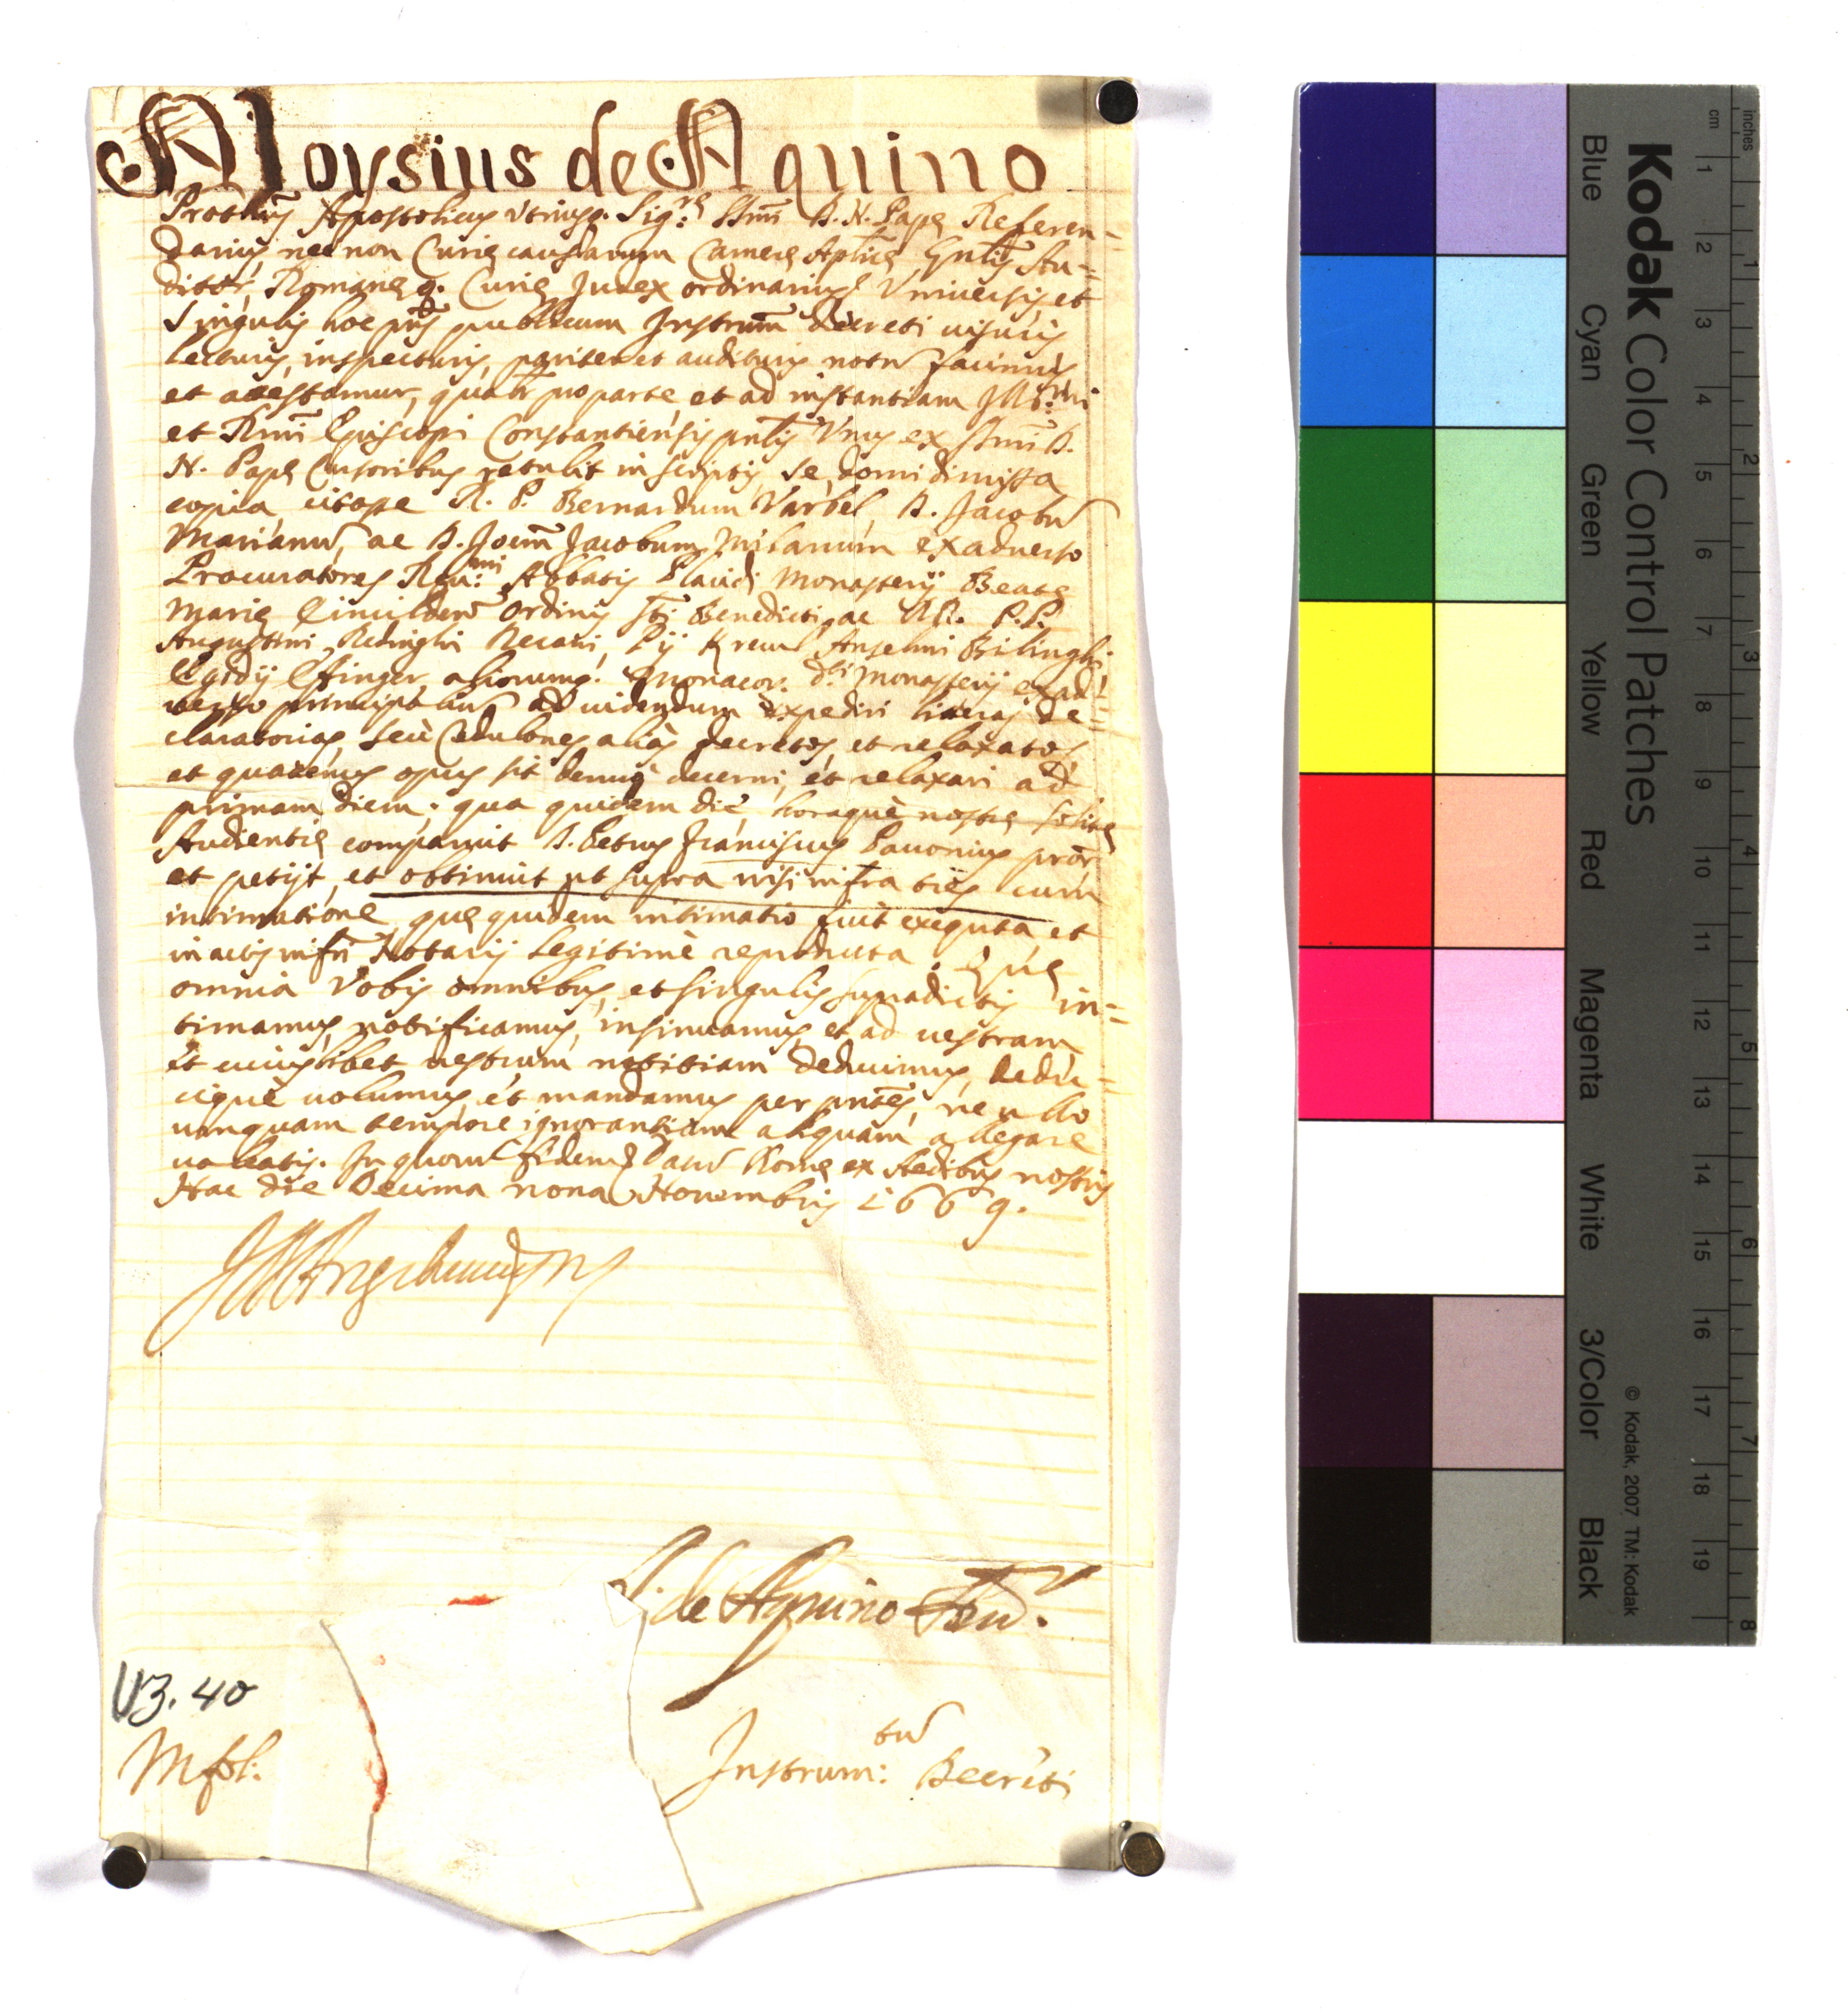 Aloysius de Aquino
Protnus Apostolicus Utriusq. Sig:re Ssmi D. N. Pape Referen-
darius nec non Curie causarum Camere Aplice Gnlis Au-
ditor, Romaneq. Curie Judex ordinarius Universis et
Singulis hoc pns publicum Instrum Decreti uisuris
lecturis, inspecturis, pariter et audituris notu facimus
et attestamur, qualr pro parte et ad instantiam Illmi
et Rmi Episcopi Constantiensis pntis Unus ex Ssmi D.
N. Pape Cursoribus retulit in scriptis, se, domi dimissa
copia citasse R. P. Bernardum Varbel, D. Jacobu
Marianu, ac D. Joem Jacobum Milanum ex aduerso
Procuratores Reu:mi Abbatis Placidi Monasterij Beate
Marie Ordinis Sti Benedicti, ac RR. P.P.
Augustini Redinghi Decani, Pij Anselmi Bilinghi
Egidij Effinger aliorumq. Monacor. di Monasterij ex ad-
uerso principaliu ad uidendum expediri literas de-
claratorias, seù Cedulones aliàs decretos, et relaxatos
et quatenus opus sit denuò decerni, et relaxari ad
primam diem; qua quidem die, horaquè nostre solite
Audientie comparuit D. Petrus Franciscus Pauonius pror
et petijt, et obtinuit ut supra nisi infra dies cum
intimatione, que quidem intimatio fuit exequta, et
in actis infri Notarij legitimè reproducta. Que
omnia Vobis omnibus, et singulis supradictis in-
timamus, notificamus, insinuamus, et ad uestram
et cuiuslibet uestrum notitiam deducimus, dedu-
cique uolumus, et mandamus per pntes, ne ullo
unquam tempore ignorantiam aliquam allegare
ualeatis. In quoru fidem Datu Rome ex Aedibus nostris
Hac die Decima nona Nouembris 1669.
de Aquino Aud.
V3. 40
Instrum:tu Decreti